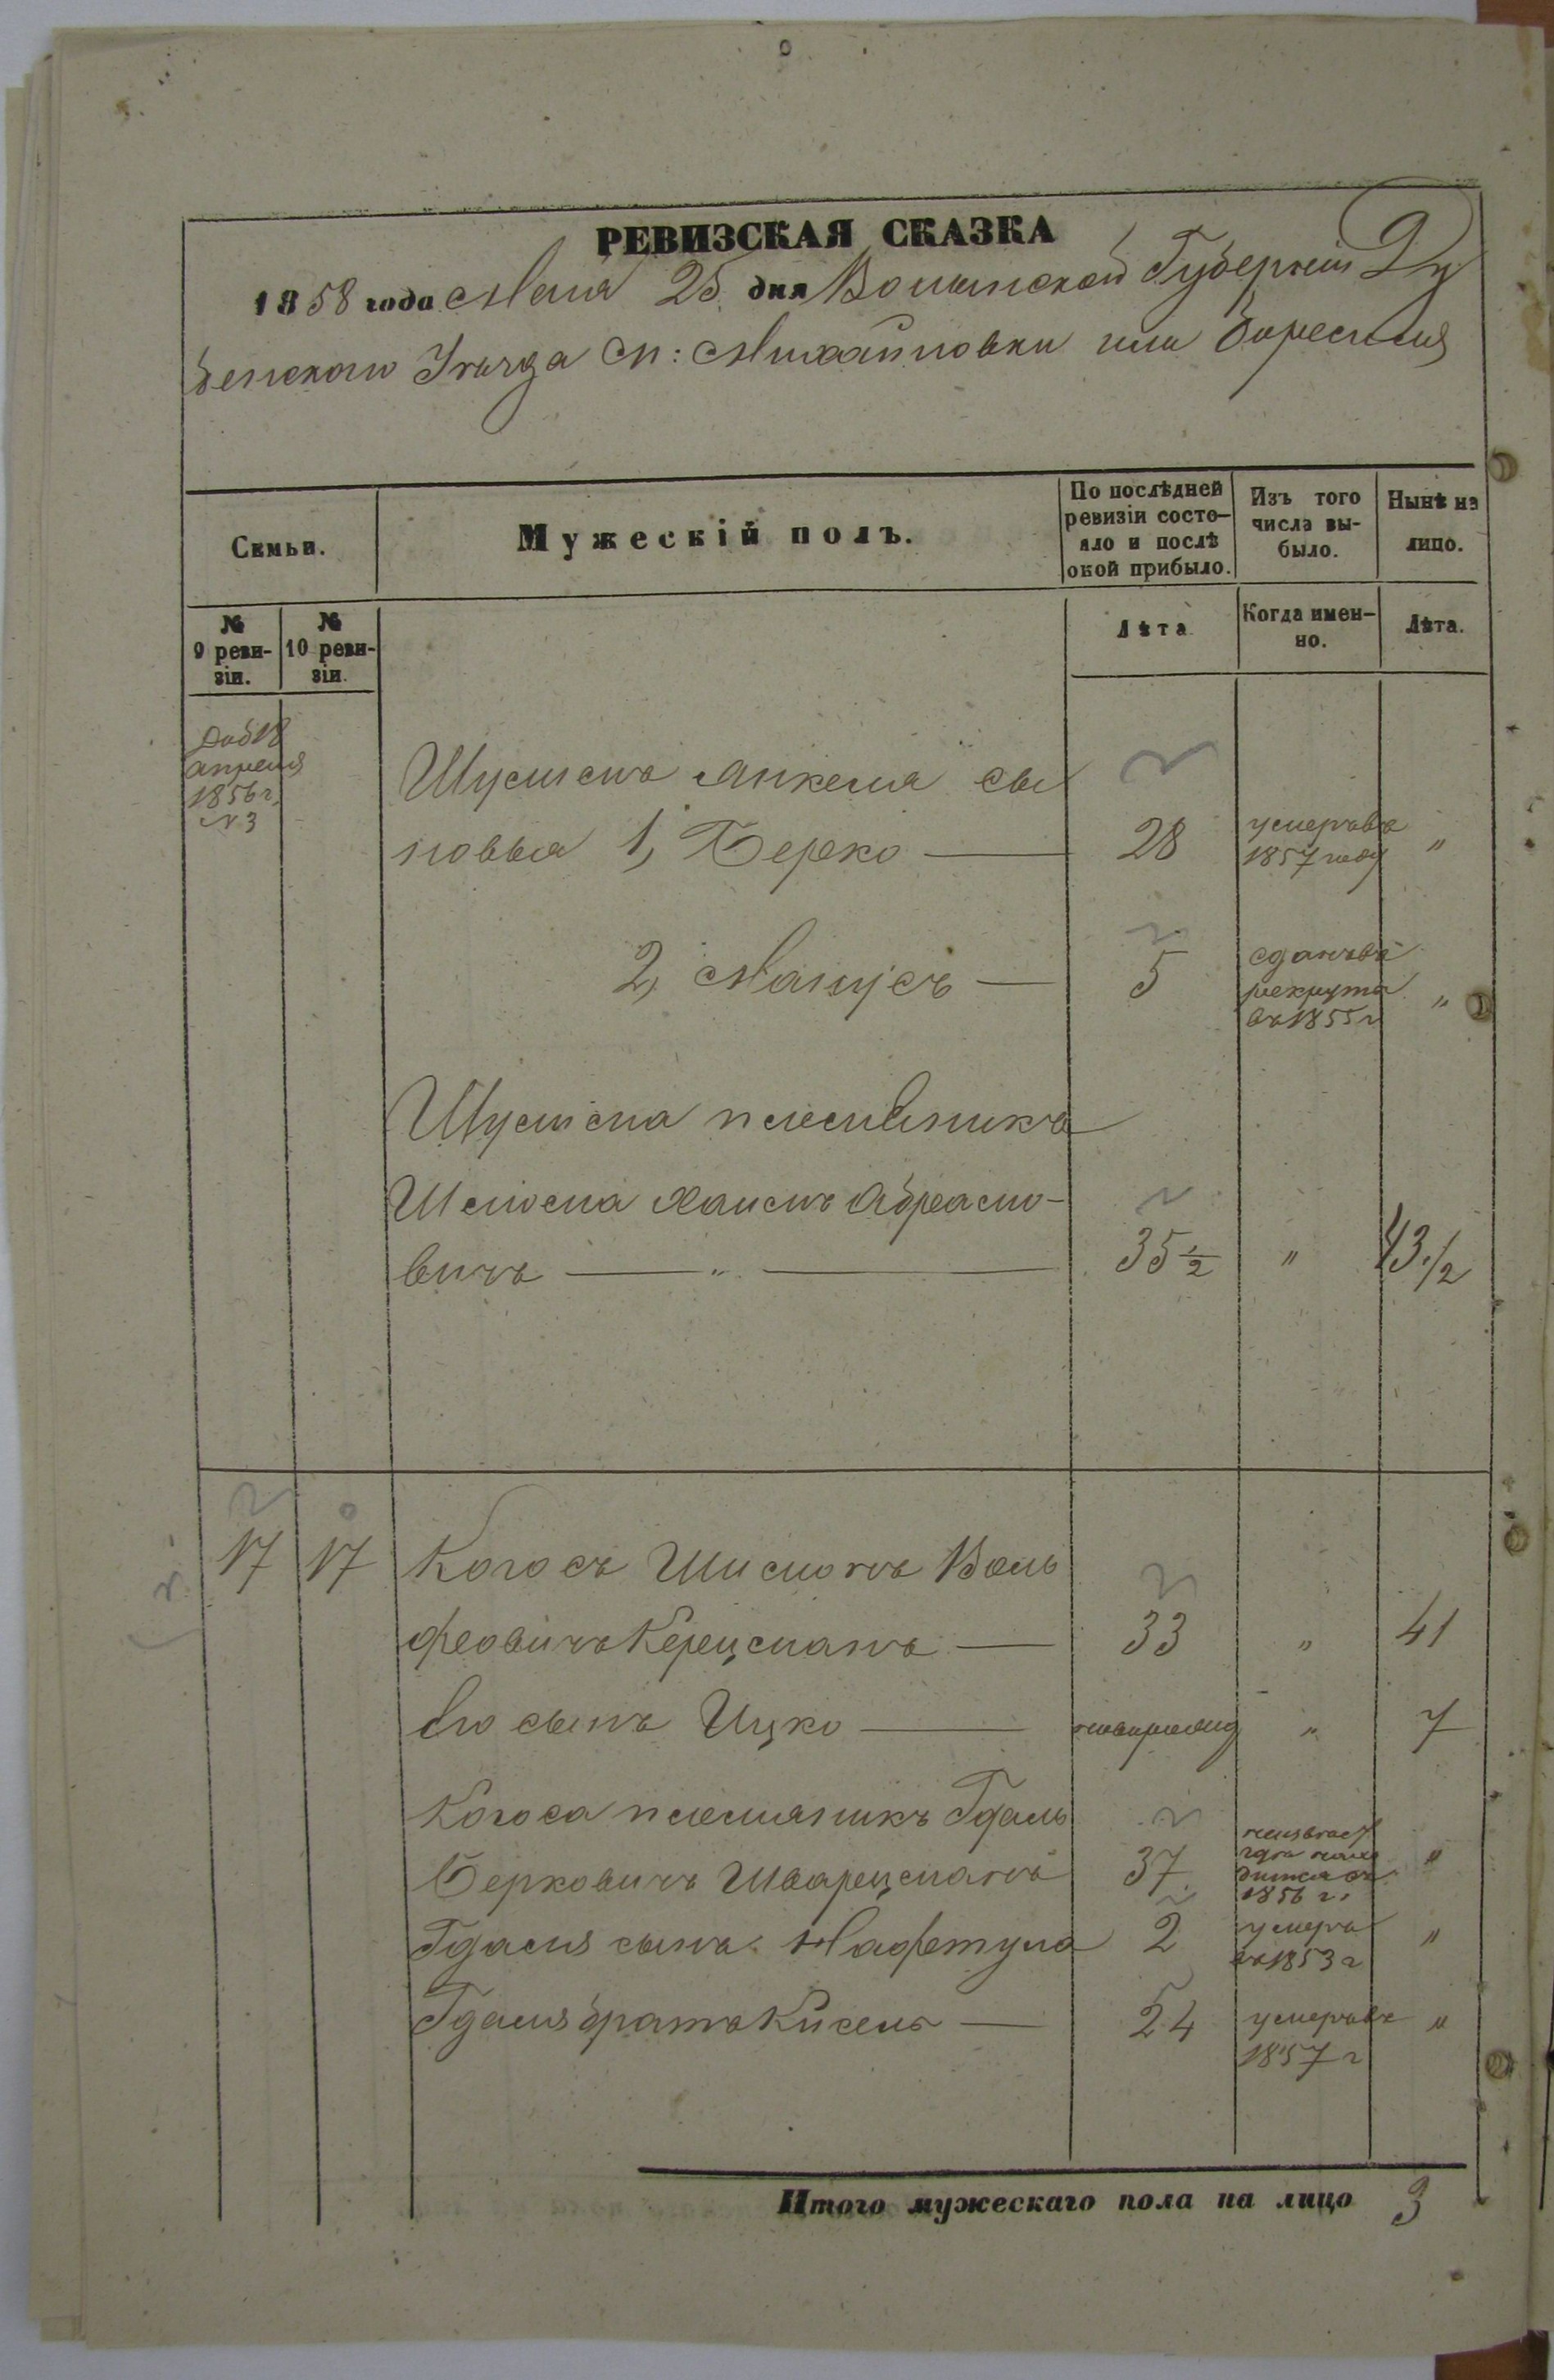 РЕВИЗСКАЯ СКАЗКА
1858 года Мая 25 дня Волынской Губерніи Ду
бенскаго Уѣзда М: Михайловки или Берестечка
Семьи.
Мужескій полъ.
По послѣдней
ревизіи состо-
яло и послѣ
оной прибыло.
Изъ того
числа вы-
было.
Нынѣ на
лицо.
№
9 реви-
зіи.
№
10 реви-
зіи.
Лѣта
Когда имен-
но.
Лѣта.
апреля
1856 г.
№ 3
Шустема Янкеля сы
новья 1, Берко — 28 умеръ въ 1857 году "
2, Манусъ — 5 сданъ въ рекруты въ 1855 г "
племянникъ
Хаимъ Абрамо-
вичъ — " — 35 1/2 " 43 1/2
17 17 Когосъ Шимонъ Воль
фовичъ Керецманъ — 33 " 41
Его сынъ Ицко — новорожд " 7
Когоса племяникъ Гдаль
Берковичъ Шварецманъ 37 1856 г. "
Гдаля сынъ Нафтула 2 умеръ въ 1853 г "
Гдаля братъ Кисель — 24 умеръ въ 1857 г "
Итого мужескаго пола на лицо 3